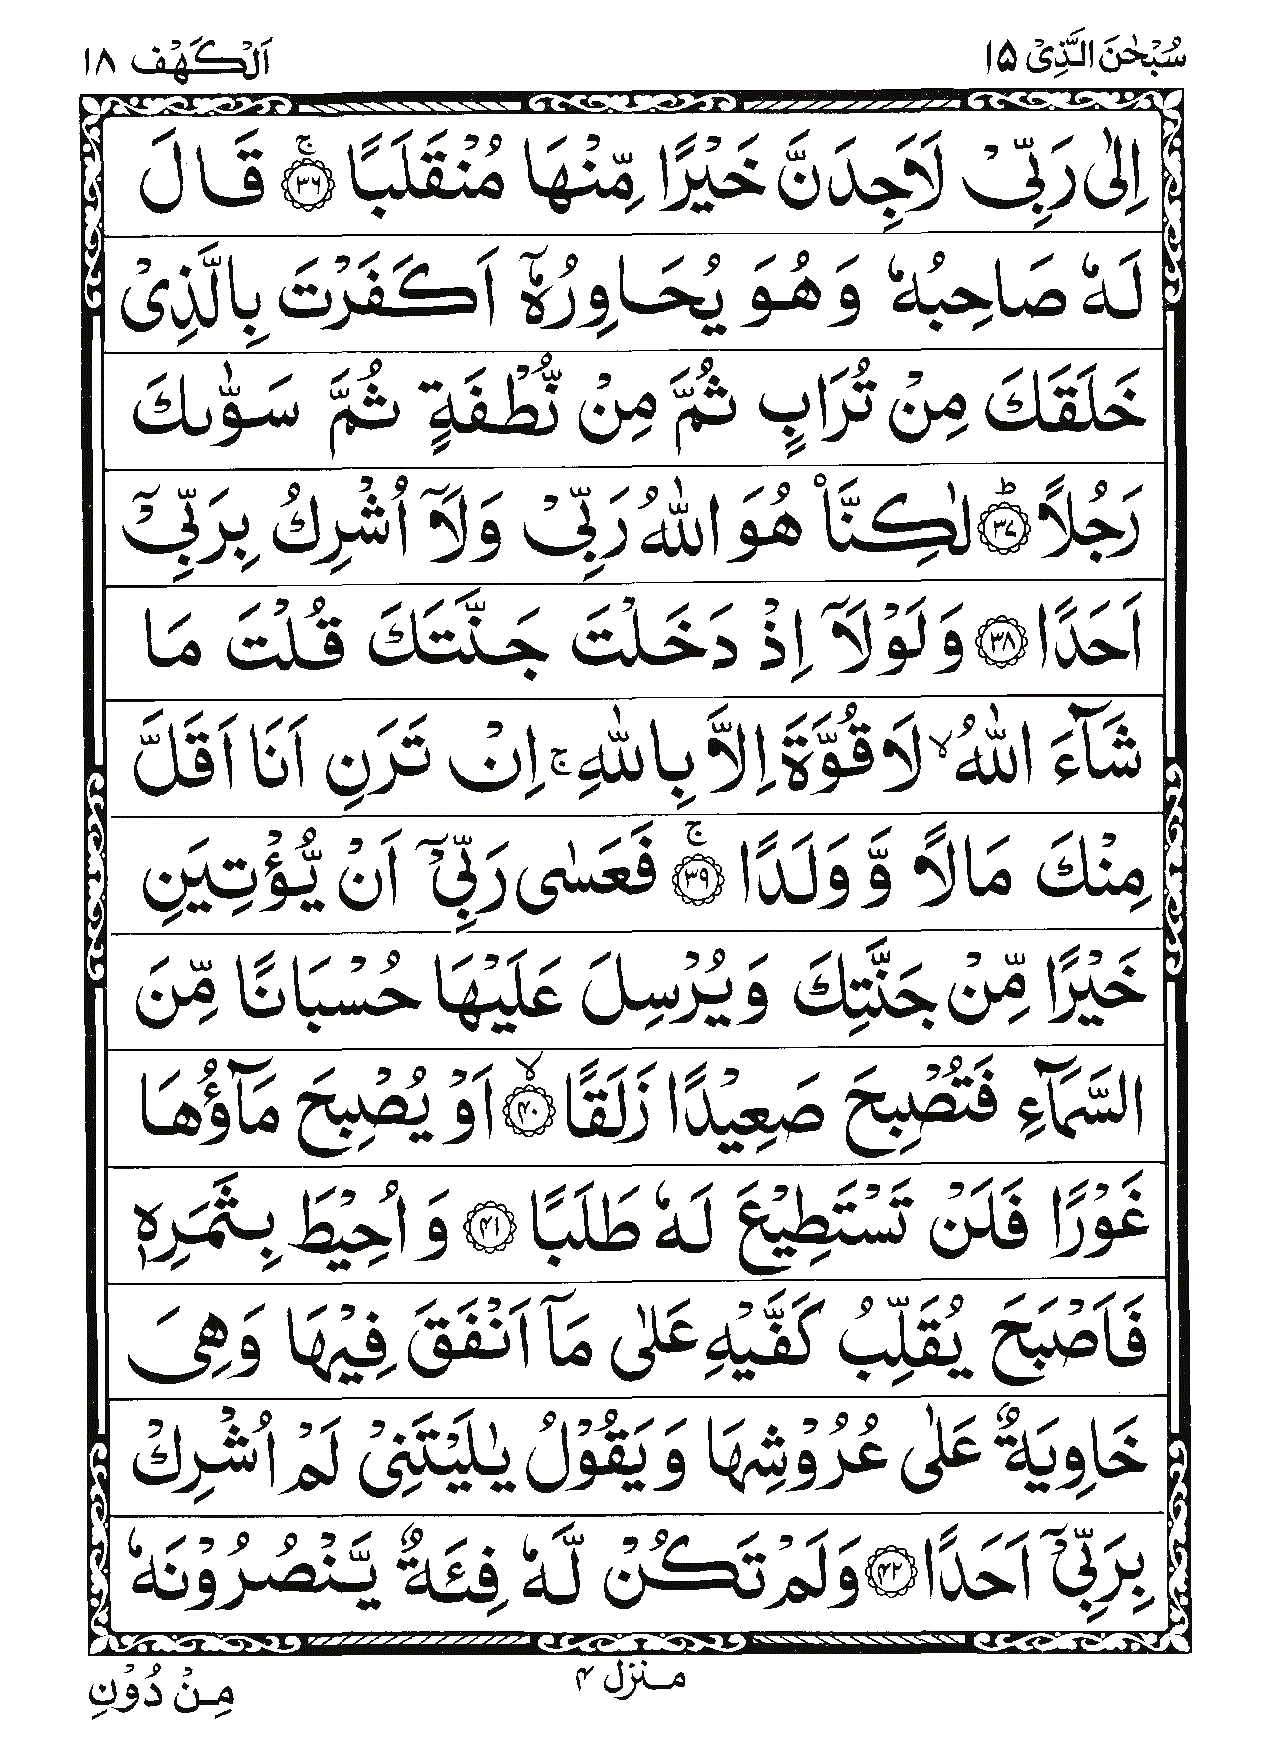 سُبْحٰنَ الَّذِیْ ۱۵
اَلْكَهْف ۱۸
اِلٰی رَبِّیْ لَاَجِدَنَّ خَیْرًا مِّنْهَا مُنْقَلَبًا ۚ‏﴿۳۶﴾ قَالَ
لَهٗ صَاحِبُهٗ وَ هُوَ یُحَاوِرُهٗۤ اَكَفَرْتَ بِالَّذِیْ
خَلَقَكَ مِنْ تُرَابٍ ثُمَّ مِنْ نُّطْفَةٍ ثُمَّ سَوّٰىكَ
رَجُلًا ؕ‏﴿۳۷﴾ لٰكِنَّا۠ هُوَ اللّٰهُ رَبِّیْ وَ لَاۤ اُشْرِكُ بِرَبِّیْۤ
اَحَدًا ﴿۳۸﴾ وَ لَوْلَاۤ اِذْ دَخَلْتَ جَنَّتَكَ قُلْتَ مَا
شَآءَ اللّٰهُ ۙ لَا قُوَّةَ اِلَّا بِاللّٰهِ ۚ اِنْ تَرَنِ اَنَا اَقَلَّ
مِنْكَ مَالًا وَّ وَلَدًا ۚ‏﴿۳۹﴾ فَعَسٰی رَبِّیْۤ اَنْ یُّؤْتِیَنِ
خَیْرًا مِّنْ جَنَّتِكَ وَ یُرْسِلَ عَلَیْهَا حُسْبَانًا مِّنَ
السَّمَآءِ فَتُصْبِحَ صَعِیْدًا زَلَقًا ۙ‏﴿۴۰﴾ اَوْ یُصْبِحَ مَآؤُهَا
غَوْرًا فَلَنْ تَسْتَطِیْعَ لَهٗ طَلَبًا ﴿۴۱﴾ وَ اُحِیْطَ بِثَمَرِهٖ
فَاَصْبَحَ یُقَلِّبُ كَفَّیْهِ عَلٰی مَاۤ اَنْفَقَ فِیْهَا وَهِیَ
خَاوِیَةٌ عَلٰی عُرُوْشِهَا وَ یَقُوْلُ یٰلَیْتَنِیْ لَمْ اُشْرِكْ
بِرَبِّیْۤ اَحَدًا ﴿۴۲﴾ وَلَمْ تَكُنْ لَّهٗ فِئَةٌ یَّنْصُرُوْنَهٗ
منزل ۴
مِنْ دُوْنِ